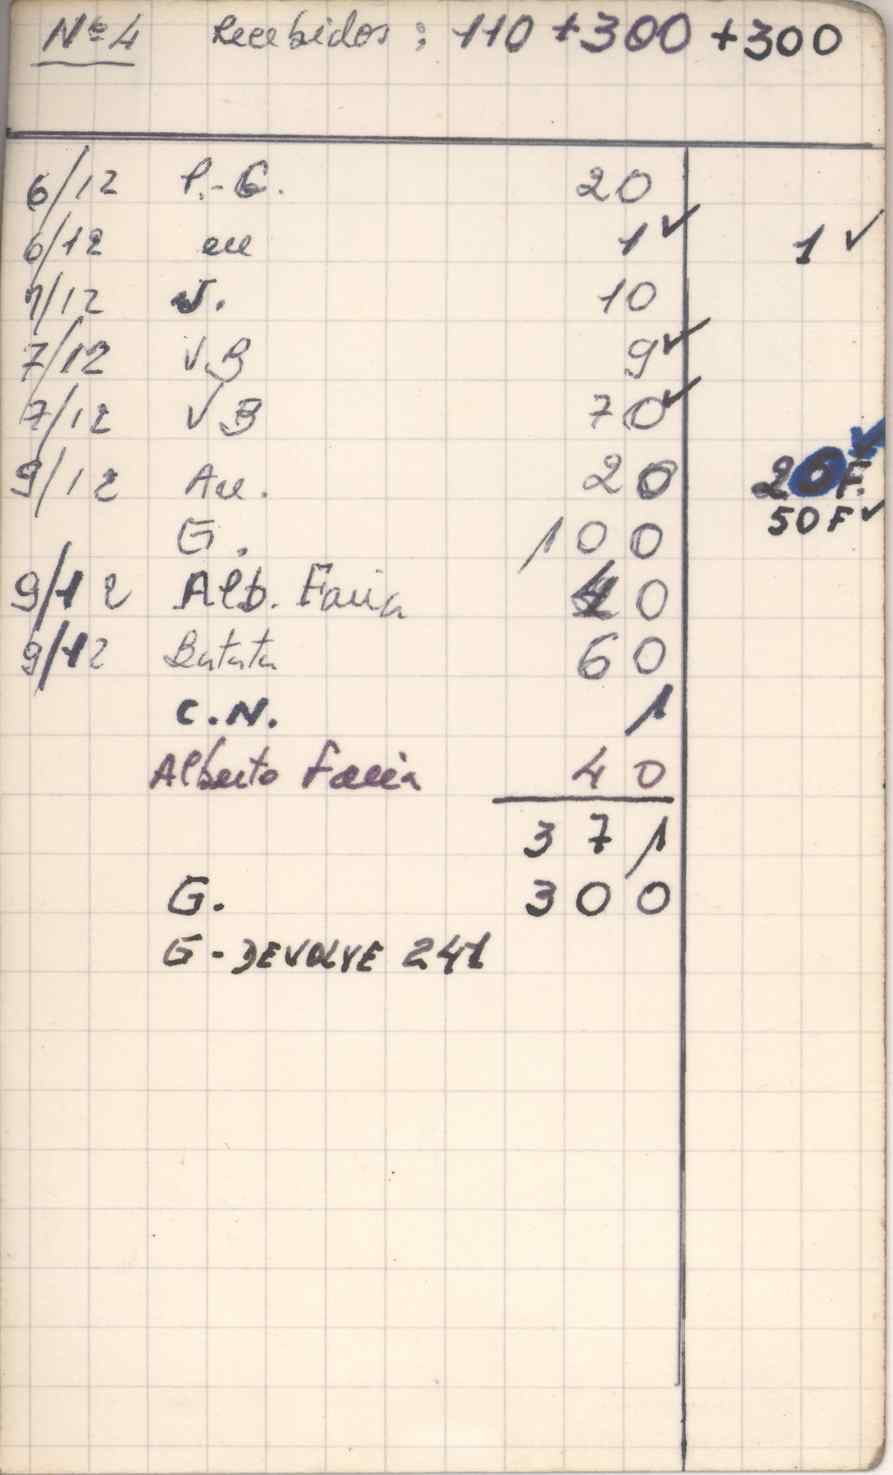 Nº 4 Recebidos : 110 + 300 + 300
6/12 P.-G. 20
6/12 1 ✓ 1 ✓
7/12 J. 10
7/12 VB 9 ✓
7/12 VB 70 ✓
9/12 20 20 F. ✓
G. 100 50 F ✓
9/12 Alb. Faria 40
9/12 Batata 60
C.N. 1
Alberto Faria 40
371
G. 300
G - DEVOLVE 241